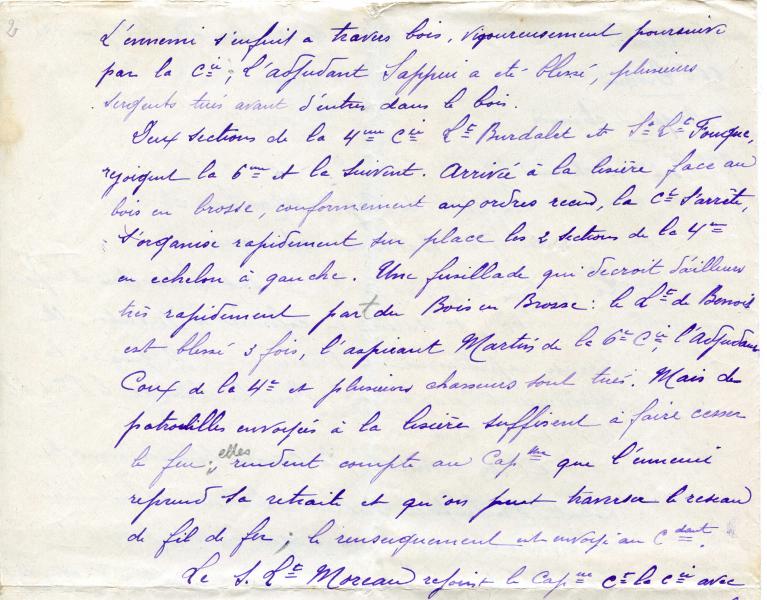 2
L'ennemi s'enfuit a travers bois, vigoureusement poursuivi
par la Cie; l'adjudant Sappin a eté blessé, plusieurs
sergents tués avant d'entrer dans le bois.
Deux sections de la 4me Cie Lt Burdalet et St Lt Fouque,
rejoignent la 6me et la suivent. Arrivée à la lisière face au
bois en brosse, conformement aux ordres recus, la Cie s'arrête,
s'organise rapidement sur place les 2 sections de la 4me
en echelon à gauche. Une fusillade qui decroit d'ailleurs
très rapidement part du Bois en Brosse: le Lt de Benoist
est blessé 3 fois, l'aspirant Martin de la 6e Cie, l'Adjudant
Coux de la 4e et plusieurs chasseurs sont tués. Mais des
patrouilles envoyées à la lisière suffisent à faire cesser
le feu; elles rendent compte au Capne que l'ennemi
reprend sa retraite et qu'on peut traverser le reseau
de fil de fer; le renseignement est envoyé au Cdant.
Le S. Lt Moreau rejoint le Capne Ct la Cie avec